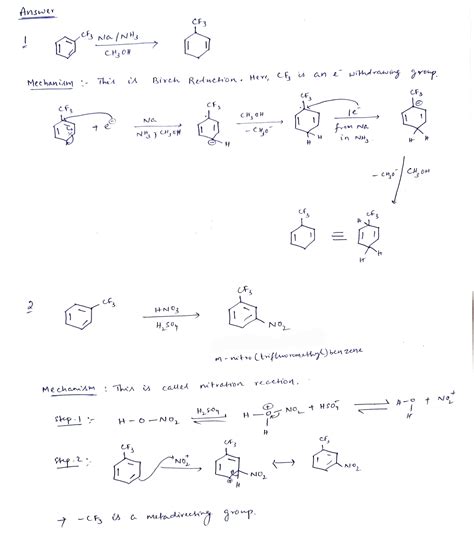 Answer
1
CF3 Na/NH3 CF3
CH3OH
Mechanism :- This is Birch Reduction. Here, CF3 is an e⁻ withdrawing group.
CF3 CF3 CF3 CF3
+ e⊖ Na CH3OH 1e⁻ ⊖
NH3, CH3OH - CH3O⁻ from Na
⊖ H H H in NH3 H H
- CH3O⁻ CH3OH
CF3 H CF3
≡
H H
2 CF3 HNO3 CF3
H2SO4 NO2
m-nitro(trifluoromethyl)benzene
Mechanism : This is called nitration reaction.
Step.1 :- H-O-NO2 H2SO4 H-O⊕-NO2 + HSO4⁻ H-O + NO2⁺
H H
Step.2 :- CF3 NO2⁺ CF3 NO2 CF3 NO2
⊕ H
→ -CF3 is a metadirecting group.